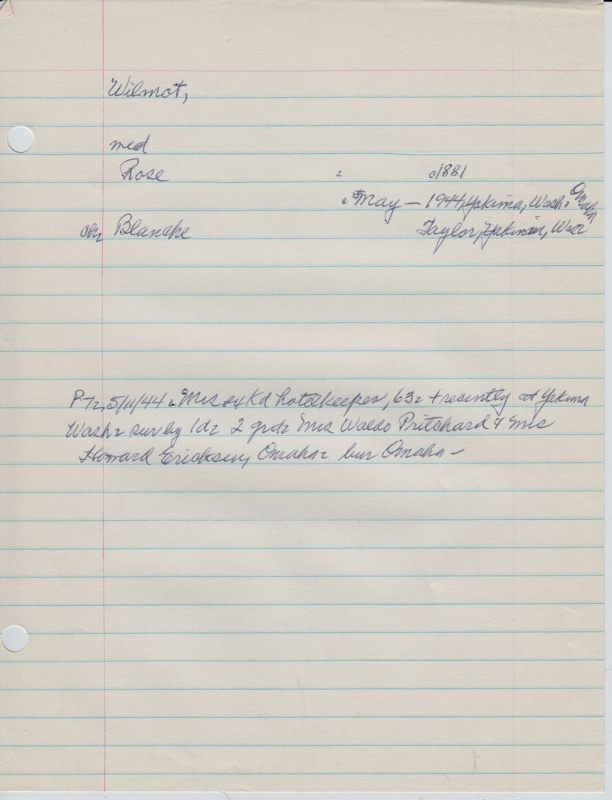 Wilmot,
med
Rose c1881
May - 1944, Yakima, Wash. Omaha
Blanche Taylor, Yakima, Wash
P 7z, 5/11/44 Mrs Kd hotelkeeper, 63 + recently at Yakima
Wash surv by 1d 2 grds Mrs Waldo Pritchard & Mrs
Howard Ericksen, Omaha bur Omaha -